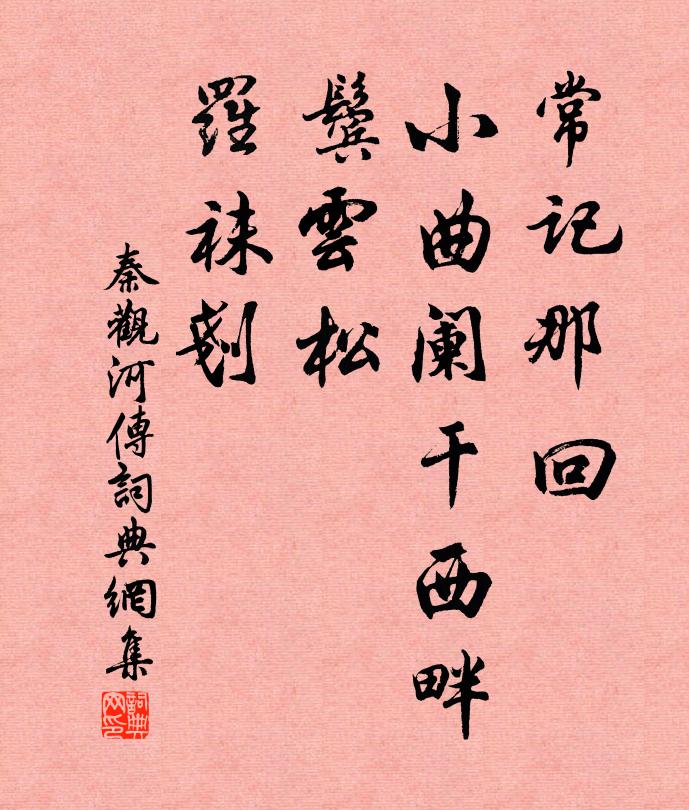 常记那回
小曲阑干西畔
鬓雲松
羅袜刬
秦觀河傳詞典網集
詞典網印